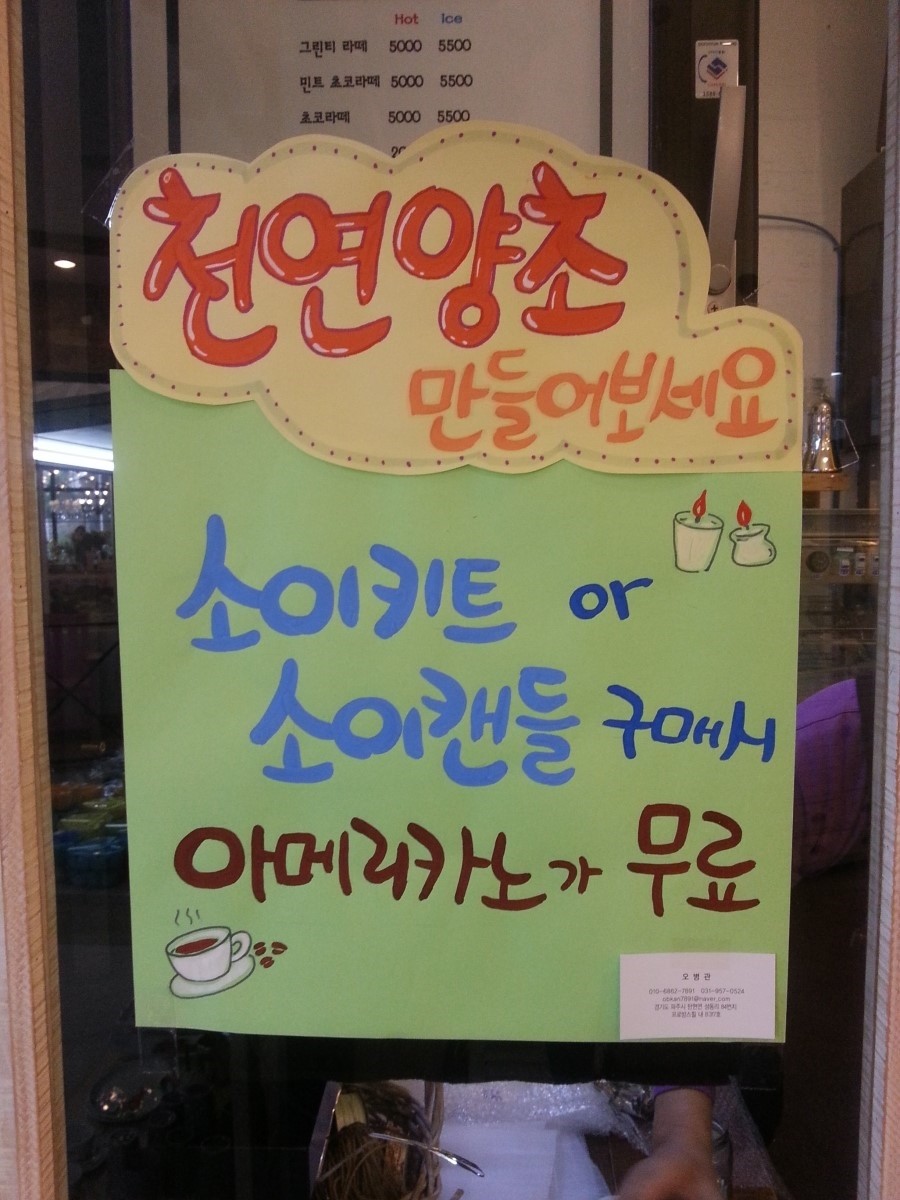 Hot Ice
그린티 라떼 5000 5500
민트 초코라떼 5000 5500
초코라떼 5000 5500
천연양초
만들어보세요
소이키트 or
소이캔들 구매시
아메리카노가 무료
오 병 관
010-6862-7891 031-957-0524
obkan7891@naver.com
경기도 파주시 탄현면